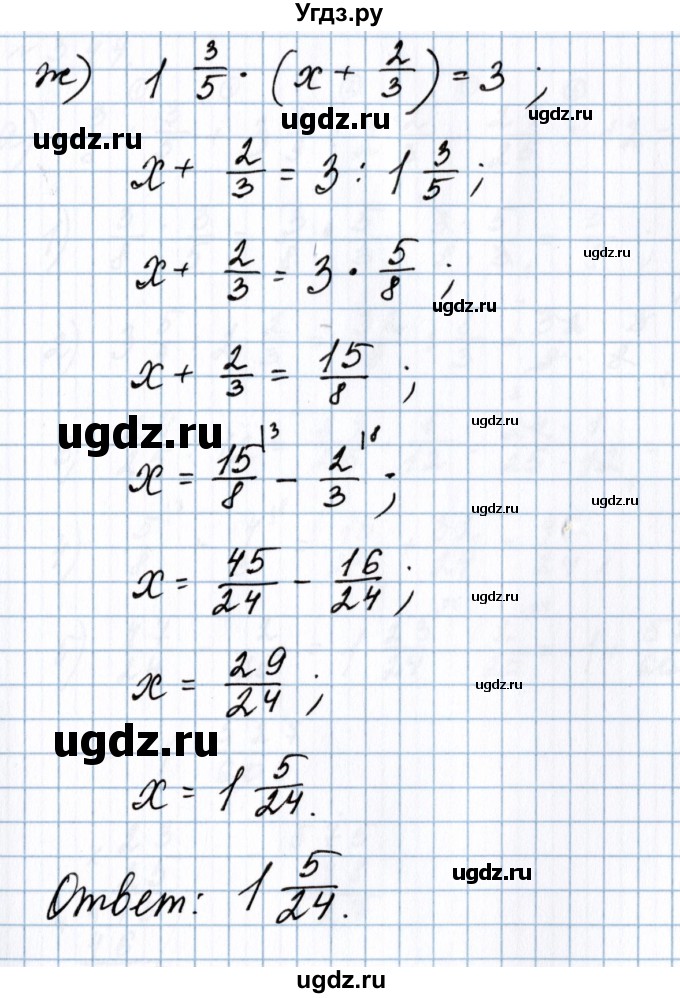 Угдз.ру
ж) 1 3/5 · (x + 2/3) = 3 ;
ugdz.ru ugdz.ru ugdz.ru
x + 2/3 = 3 : 1 3/5 ;
x + 2/3 = 3 · 5/8 ;
ugdz.ru
ugdz.ru
x + 2/3 = 15/8 ;
ugdz.ru ugdz.ru
x = 15/8 |3 - 2/3 |8 ;
ugdz.ru ugdz.ru
x = 45/24 - 16/24 ;
ugdz.ru
x = 29/24 ;
ugdz.ru
ugdz.ru
x = 1 5/24.
Ответ: 1 5/24.
ugdz.ru
ugdz.ru